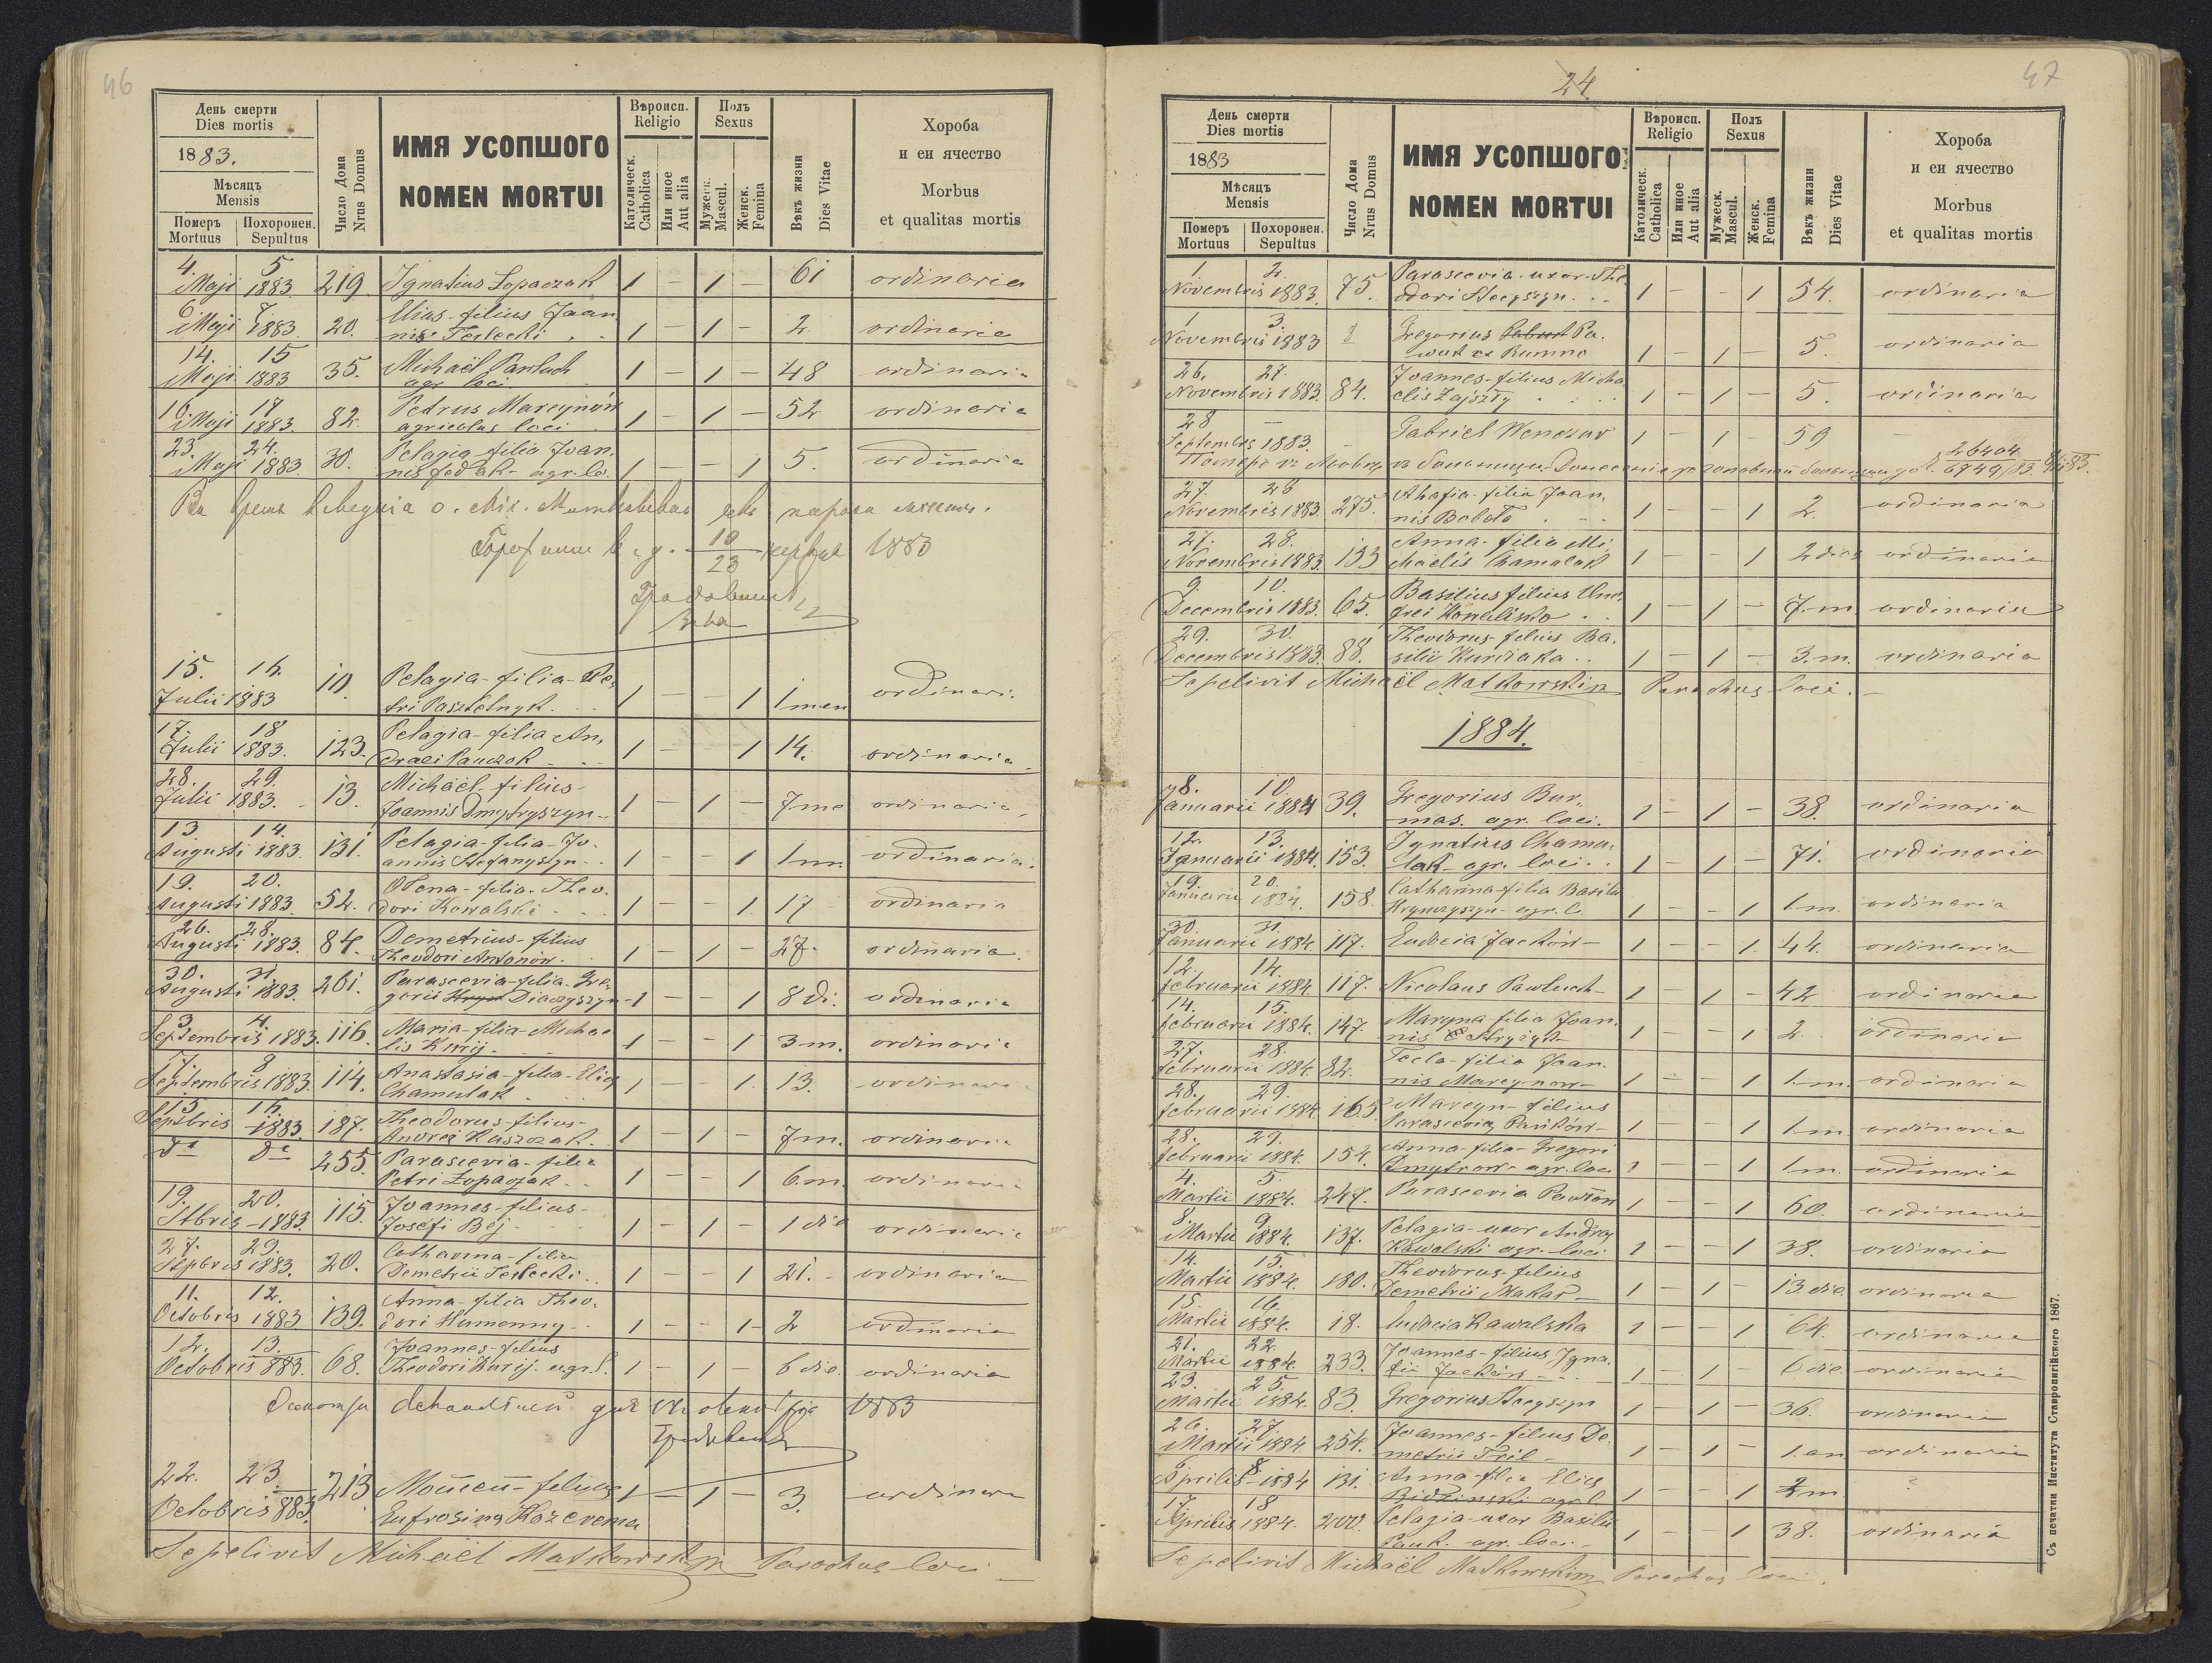 46
День смерти
Dies mortis
1883.
Мѣсяцъ
Mensis
Померъ
Mortuus
Похоронен.
Sepultus
Число Дома
Nrus Domus
ИМЯ УСОПШОГО
NOMEN MORTUI
Вѣроисп.
Religio
Католическ.
Catholica
Или иное
Aut alia
Полъ
Sexus
Мужеск.
Mascul.
Женск.
Femina
Вѣкъ жизни
Dies Vitae
Хороба
и еи ячество
Morbus
et qualitas mortis
4. 5 Ignatius Łopaczak
Maji 1883 219 1 – 1 – 61 ordinaria
6 7. Elias filius Joan
Maji 1883. 20. nis Terlecki 1 – 1 – 2. ordinaria
14. 15 Michaël Pawluch
Maji 1883 35. agr loci 1 – 1 – 48 ordinaria
16 17 Petrus Marcynów
Maji 1883. 82. agricolus loci 1 – 1 – 52 ordinaria
23. 24. Pelagia filia Joan.
Maji 1883 30. nis Fedak agr. lo. 1 – – 1 5. ordinaria
10
23 1883
15. 16. Pelagia-filia-Pe,
Julii 1883 10. tri Pasztetnyk. 1 – – 1 1 men ordinari.
17. 18 Pelagia-filia An,
Julii 1883. 123. draei Pauczak 1 – – 1 14. ordinaria
28. 29. Michaël-filius-
Julii 1883. 13. Joannis Dmytryszyn 1 – 1 – 7 me ordinaria
13. 14. Pelagia-filia-Jo-
Augusti 1883. 131. annis Stefanyszyn 1 – – 1 1 m. ordinaria.
19. 20. Olena-filia-Theo.
Augusti 1883. 52. dori Kowalski 1 – – 1. 17 ordinaria
26. 28. Demetrius-filius
Augusti 1883. 84. Theodori Antonów. 1 – 1 – 27. ordinaria.
30. 31. Parascevia-filia-Gre,
Augusti 1883. 261. gorii Diaczyszyn 1 – – 1 8 di. ordinaria
3 4. Maria-filia-Michae
Septembris 1883. 116. lis Kurij. 1 – – 1 3 m. ordinaria
7. 8 Anastasia-filia-Eliae
Septembris 1883. 114. Chamulak 1 – – 1. 13. ordinari
15 16. Theodorus-filius-
Septbris 1883. 187. Andrea Kaszczak 1 – 1 – 7 m. ordinaria
dto dto 255. Parascevia-filia
Petri Łopaczak 1 – – 1 6. m. ordinaria
19. 20. Joannes-filius-
Stbris-1883. 115. Josefi Bej 1 – 1 – 1 die ordinaria
27. 29. Catharina-filia
Stpbris 1883. 20. Demetrii Terlecki 1 – – 1 21. ordinaria
11. 12. Anna-filia Theo.
Octobris 1883 139. dori Humenny 1 – – 1 2 ordinaria
12. 13. Joannes-filius
Octobris 1883. 68. Theodori Kurij. agr. l. 1 – 1 – 6 die. ordinaria
1883
22. 23 213 1 – 1 – 3. ordinara
Octobris 883. Eufrosina Kozevena
Sepelivit Michaël Matkowskyj Parochus loci
24
47
День смерти
Dies mortis
1883
Мѣсяцъ
Mensis
Померъ
Mortuus
Похоронен.
Sepultus
Число Дома
Nrus Domus
ИМЯ УСОПШОГО
NOMEN MORTUI
Вѣроисп.
Religio
Католическ.
Catholica
Или иное
Aut alia
Полъ
Sexus
Мужеск.
Mascul.
Женск.
Femina
Вѣкъ жизни
Dies Vitae
Хороба
и еи ячество
Morbus
et qualitas mortis
1. 2. Parascevia-uxor-The
Novembris 1883. 75. odori Stecyszyn 1 – – 1 54. ordinaria
1 3 Gregorius Pa.
Novembris 1883 ex Rumno 1 – 1 – 5. ordinaria
26. 27. Joannes-filius Micha
Novembris 1883. 84. elis Zajszły 1 – 1 – 5. ordinaria
28 –
Septembris 1883 – Gabriel Wenczur 1 – 1 – 59 –
Померъ въ Львовѣ въ больници
27. 28 Ahafia-filia Joan.
Novembris 1883. 275. nis Bobeła 1 – – 1 2. ordinaria
27. 28. Anna-filia Mi
Novembris 1883. 153 chaelis Chamulak 1 – – 1 2 dies ordinaria
9. 10. Basilius filius Onu.
Decembris 1883. 65. frei Konelisko 1 – 1 – 7. m ordinaria
29. 30. Theodorus-filius Ba.
Decembris 1883. 88. silii Kurdiaka 1 – 1 – 3. m. ordinaria
Sepelivit Michaël Matkowskij Parochus loci.
1884.
8. 10. Gregorius Bur.
Januarii 1884 39. mas. agr. loci. 1 – 1 – 38. ordinaria
12. 13. Ignatius Chamu.
Januarii 1884. 153. lak-agr. loci. 1 – 1 – 71. ordinaria
19. 20. Catharina-filia Basilii
Januarii 1884. 158. Hrynczyszyn-agr. l. 1 – – 1 1 m. ordinaria
30. 31.
Januarii 1884 117. Eudocia Jacków 1 – – 1. 44. ordinaria
12. 14.
februarii 1884. 117. Nicolaus Pawluch 1 – 1 – 42 ordinaria
14. 15. Maryna filia Joan.
februarii 1884. 147. nis Stryżyk 1 – – 1 2. ordinaria
27. 28. Tecla-filia Joan.
februarii 1884. 82. nis Marcynow 1 – – 1 1. m. ordinaria
28. 29. Marcyn-filius
februarii 1884. 165 Parascevia Pańków 1 – – 1 1. m ordinaria
28. 29. Anna-filia-Gregori
februarii 1884. 154. Dmytrow-agr. loci 1 – – 1 1 m. ordinaria
4. 5.
Martii 1884. 247. Parascevia 1 – – 1 60. ordinaria
8. 9. Pelagia-uxor Andreae
Martii 1884. 137. Kowalski agr. loci 1 – – 1 38. ordinaria
14. 15. Theodorus-filius
Martii 1884. 180. Demetrii Makar 1 – 1 – 13. die. ordinaria
15. 16.
Martii 1884. 18. Eudocia Kawalska 1 – – 1 64. ordinaria
21. 22. Joannes-filius Igna.
Martii 1884. 233. tii Jacków 1 – 1 – 6 die. ordinaria
23. 25.
Martii 1884. 83. Gregorius Stecyszyn 1 – 1 – 36. ordinaria
26. 27. Joannes-filius De.
Martii 1884. 254. metrii Fril 1 – 1 – 1. an ordinaria
6 8 Anna-filia Eliae
Aprilis-1884 131. Bidzinski agr l. 1 – – 1 m ?
17. 18 Pelagia-uxor Basilii
Aprilis 1884. 200. Pauk. agr. loci 1 – – 1 38. ordinaria
Sepelivit Michaël Matkowskij Parochus loci.
Съ печатни Института Ставропигійского 1867.